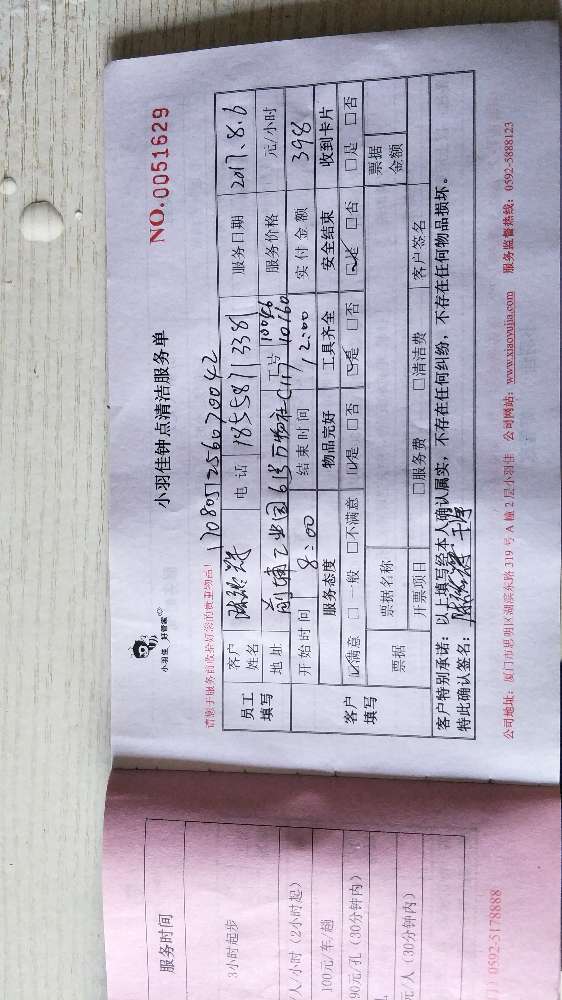 小羽佳 好管家
小羽佳钟点清洁服务单
NO.0051629
请您于服务前收拾好您的贵重物品!
170805256070042
员工填写
客户姓名
电话 18558113381
服务日期 2017.8.6
地址 前埔工业园61号万物社(11)
服务价格 元/小时
开始时间 8:00
结束时间 12:00
实付金额 398
客户填写
服务态度 物品完好 工具齐全 安全结束 收到卡片
☑满意 □一般 □不满意 ☑是 □否 ☑是 □否 ☑是 □否 □是 □否
票据 票据名称 票据金额
开票项目 □服务费 □清洁费 客户签名
客户特别承诺:以上填写经本人确认属实,不存在任何纠纷,不存在任何物品损坏。
特此确认签名:
公司地址:厦门市思明区湖滨东路319号A幢2层小羽佳 公司网站:www.xiaoyujia.com 服务监督热线:0592-5888123
服务时间
3小时起步
/人/小时(2小时起)
100元/车/趟
90元/孔(30分钟内)
元/人(30分钟内)
0592-5178888